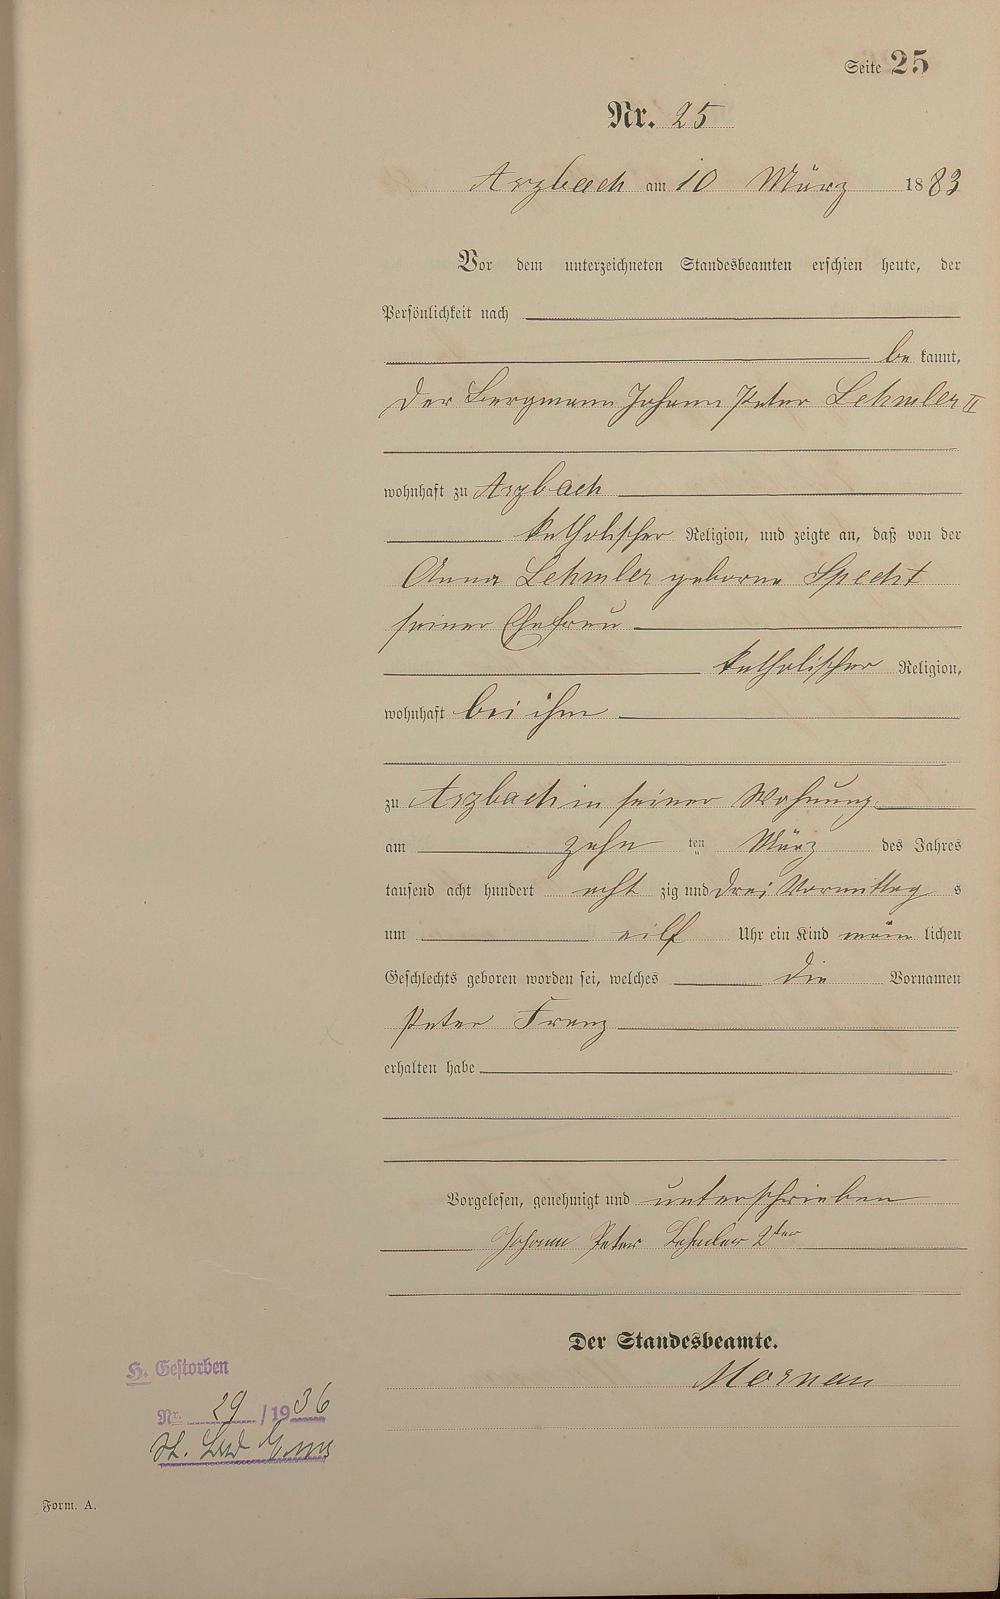 Seite 25
Nr. 25
Arzbach am 10 März 1883
Vor dem unterzeichneten Standesbeamten erschien heute, der
Persönlichkeit nach
be kannt,
der Bergmann Johann Peter Lehmler II
wohnhaft zu Arzbach
katholischer Religion, und zeigte an, daß von der
Anna Lehmler geborne Specht
seiner Ehefrau
katholischer Religion,
wohnhaft bei ihm
zu Arzbach in seiner Wohnung
am zehn ten März des Jahres
tausend acht hundert acht zig und drei Vormittag s
um eilf Uhr ein Kind män lichen
Geschlechts geboren worden sei, welches die Vornamen
Peter Franz
erhalten habe
Vorgelesen, genehmigt und unterschrieben
Johann Peter Lehmler 2ter
Der Standesbeamte.
H. Gestorben
Nr. 29 / 1936
St.
Form. A.